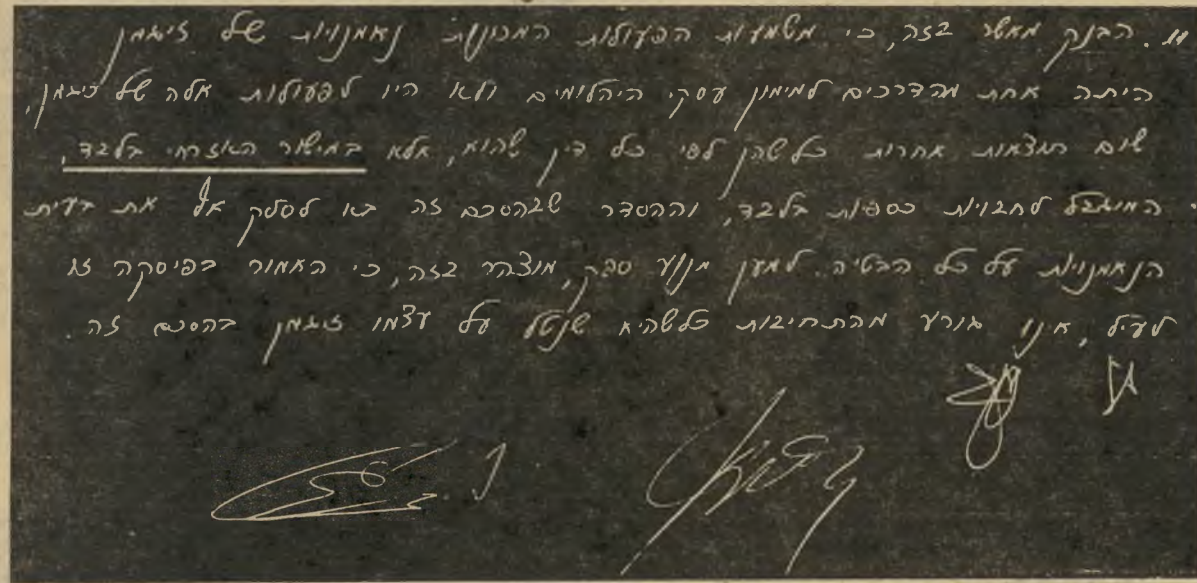 11. הבנק מאשר בזה, כי משמעות הפעולות המכונות נאמנויות של זיגמן
היתה אחת מהדרכים למימון עסקי היהלומים ולא היו לפעולות אלה של זיגמן,
שום תוצאות אחרות כלשהן לפי כל דין שהוא, אלא במישור האזרחי בלבד,
המוגבל לחבויות כספיות בלבד, וההסדר שבהסכם זה בא לסלק את בעית
הנאמנויות על כל הבטיה. למען מנוע ספק, מוצהר בזה, כי האמור בפיסקה זו
לעיל, אינו גורע מהתחיבות כלשהיא שנטל על עצמו זיגמן בהסכם זה.